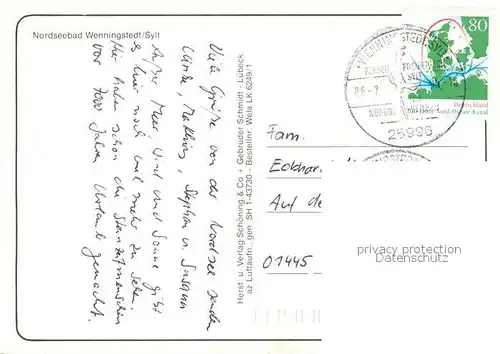 Nordseebad Wenningstedt/Sylt
Viele Grüße von der Nordsee senden
Mathias, Stephan u. Susann
Außer Meer, Wind und Sonne gibt
es hier noch viel mehr zu sehen.
Hier haben schon die Steinzeitmenschen
vor 7000 Jahren Urlaub gemacht.
Herst. u. Verlag Schöning & Co + Gebrüder Schmidt - Lübeck
az Luftaufn. gen. SH 1-43730 - Bestellnr. Wela LK 6249/1
WENNINGSTEDT, SYLT
25996
80
Deutschland
100 Jahre Nord-Ostsee-Kanal
Fam.
Eckhar
Auf de
01445
privacy protection
Datenschutz